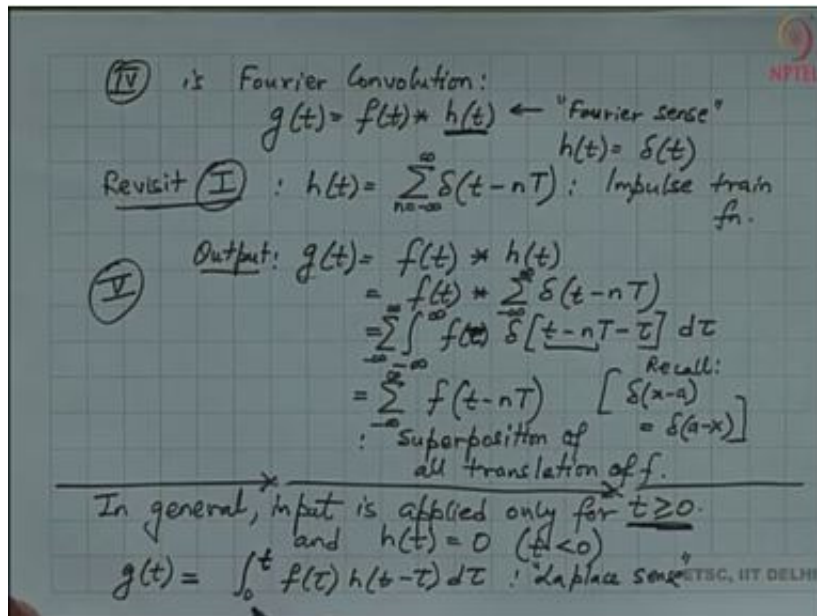 NPTEL
(IV) is Fourier Convolution:
g(t) = f(t) * h(t) ← "Fourier sense"
h(t) = δ(t)
Revisit (I) : h(t) = ∑_{n=-∞}^{∞} δ(t-nT) : Impulse train
fn.
(V) Output: g(t) = f(t) * h(t)
= f(t) * ∑_{-∞}^{∞} δ(t-nT)
= ∑_{-∞}^{∞} ∫_{-∞}^{∞} f(τ) δ[t-nT-τ] dτ
= ∑_{-∞}^{∞} f(t-nT) [Recall: δ(x-a)
= δ(a-x)]
: Superposition of
all translation of f.
In general, input is applied only for t≥0.
and h(t) = 0 (t<0)
g(t) = ∫_0^t f(τ) h(t-τ) dτ : "Laplace sense"
ETSC, IIT DELHI